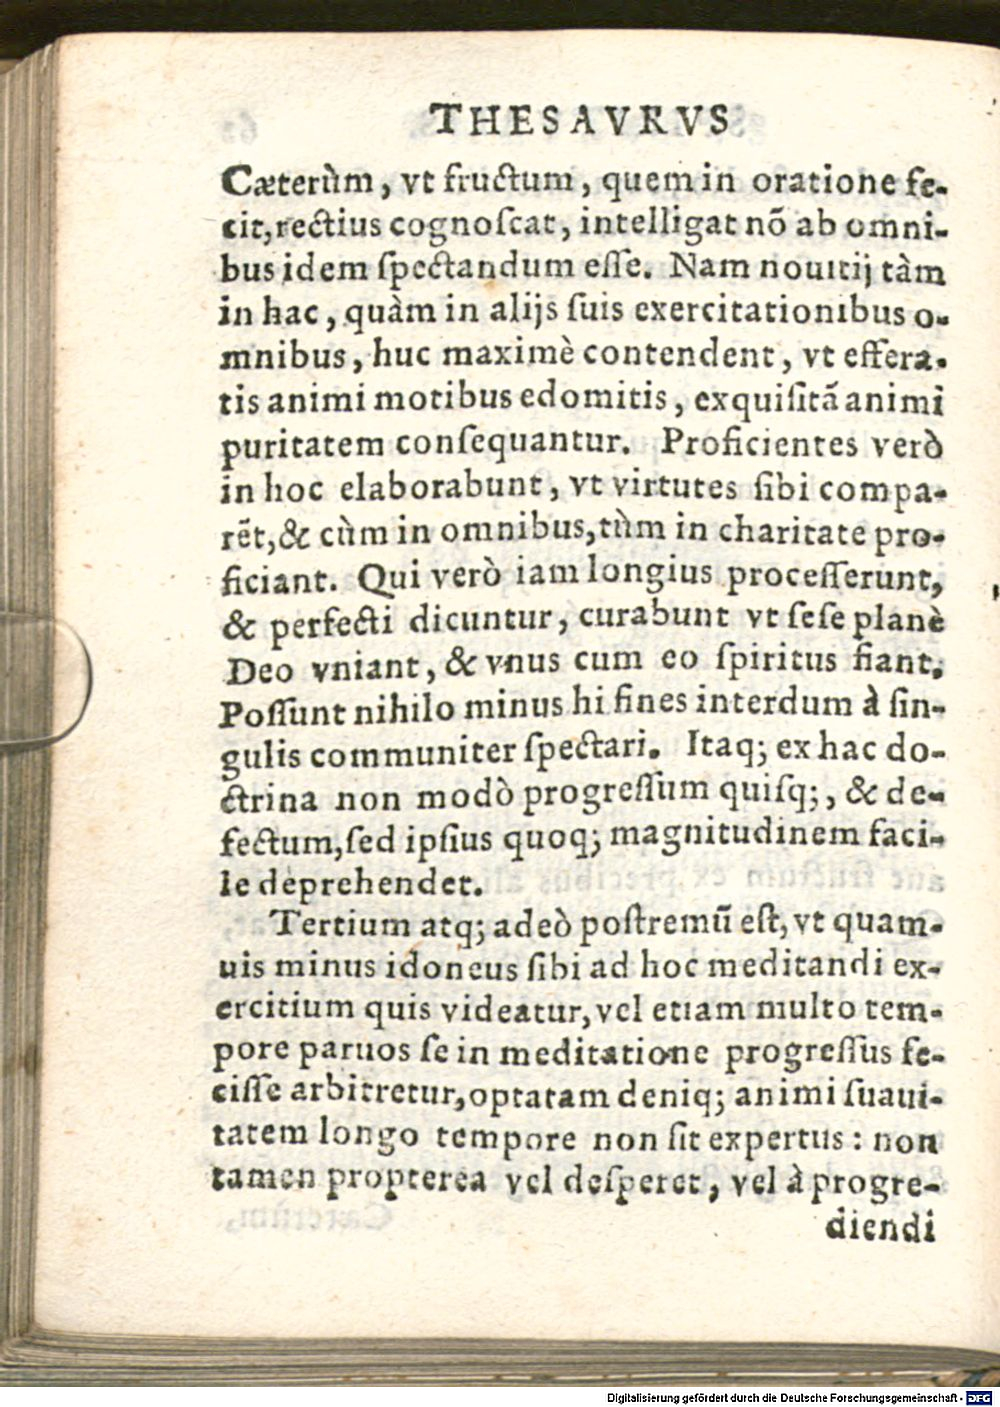 THESAVRVS
Cæterùm, vt fructum, quem in oratione fe-
cit, rectius cognoſcat, intelligat nõ ab omni-
bus idem ſpectandum eſſe. Nam nouitij tàm
in hac, quàm in alijs ſuis exercitationibus o-
mnibus, huc maximè contendent, vt effera-
tis animi motibus edomitis, exquiſitã animi
puritatem conſequantur. Proficientes verò
in hoc elaborabunt, vt virtutes ſibi compa-
rẽt, & cùm in omnibus, tùm in charitate pro-
ficiant. Qui verò iam longius proceſſerunt,
& perfecti dicuntur, curabunt vt ſeſe planè
Deo vniant, & vnus cum eo ſpiritus fiant.
Poſſunt nihilo minus hi fines interdum à ſin-
gulis communiter ſpectari. Itaq; ex hac do-
ctrina non modò progreſſum quiſq;, & de-
fectum, ſed ipſius quoq; magnitudinem faci-
le deprehendet.
Tertium atq; adeò poſtremũ eſt, vt quam-
uis minus idoneus ſibi ad hoc meditandi ex-
ercitium quis videatur, vel etiam multo tem-
pore paruos ſe in meditatione progreſſus fe-
ciſſe arbitretur, optatam deniq; animi ſuaui-
tatem longo tempore non ſit expertus: non
tamen propterea vel deſperet, vel à progre-
diendi
Digitalisierung gefördert durch die Deutsche Forschungsgemeinschaft - DFG